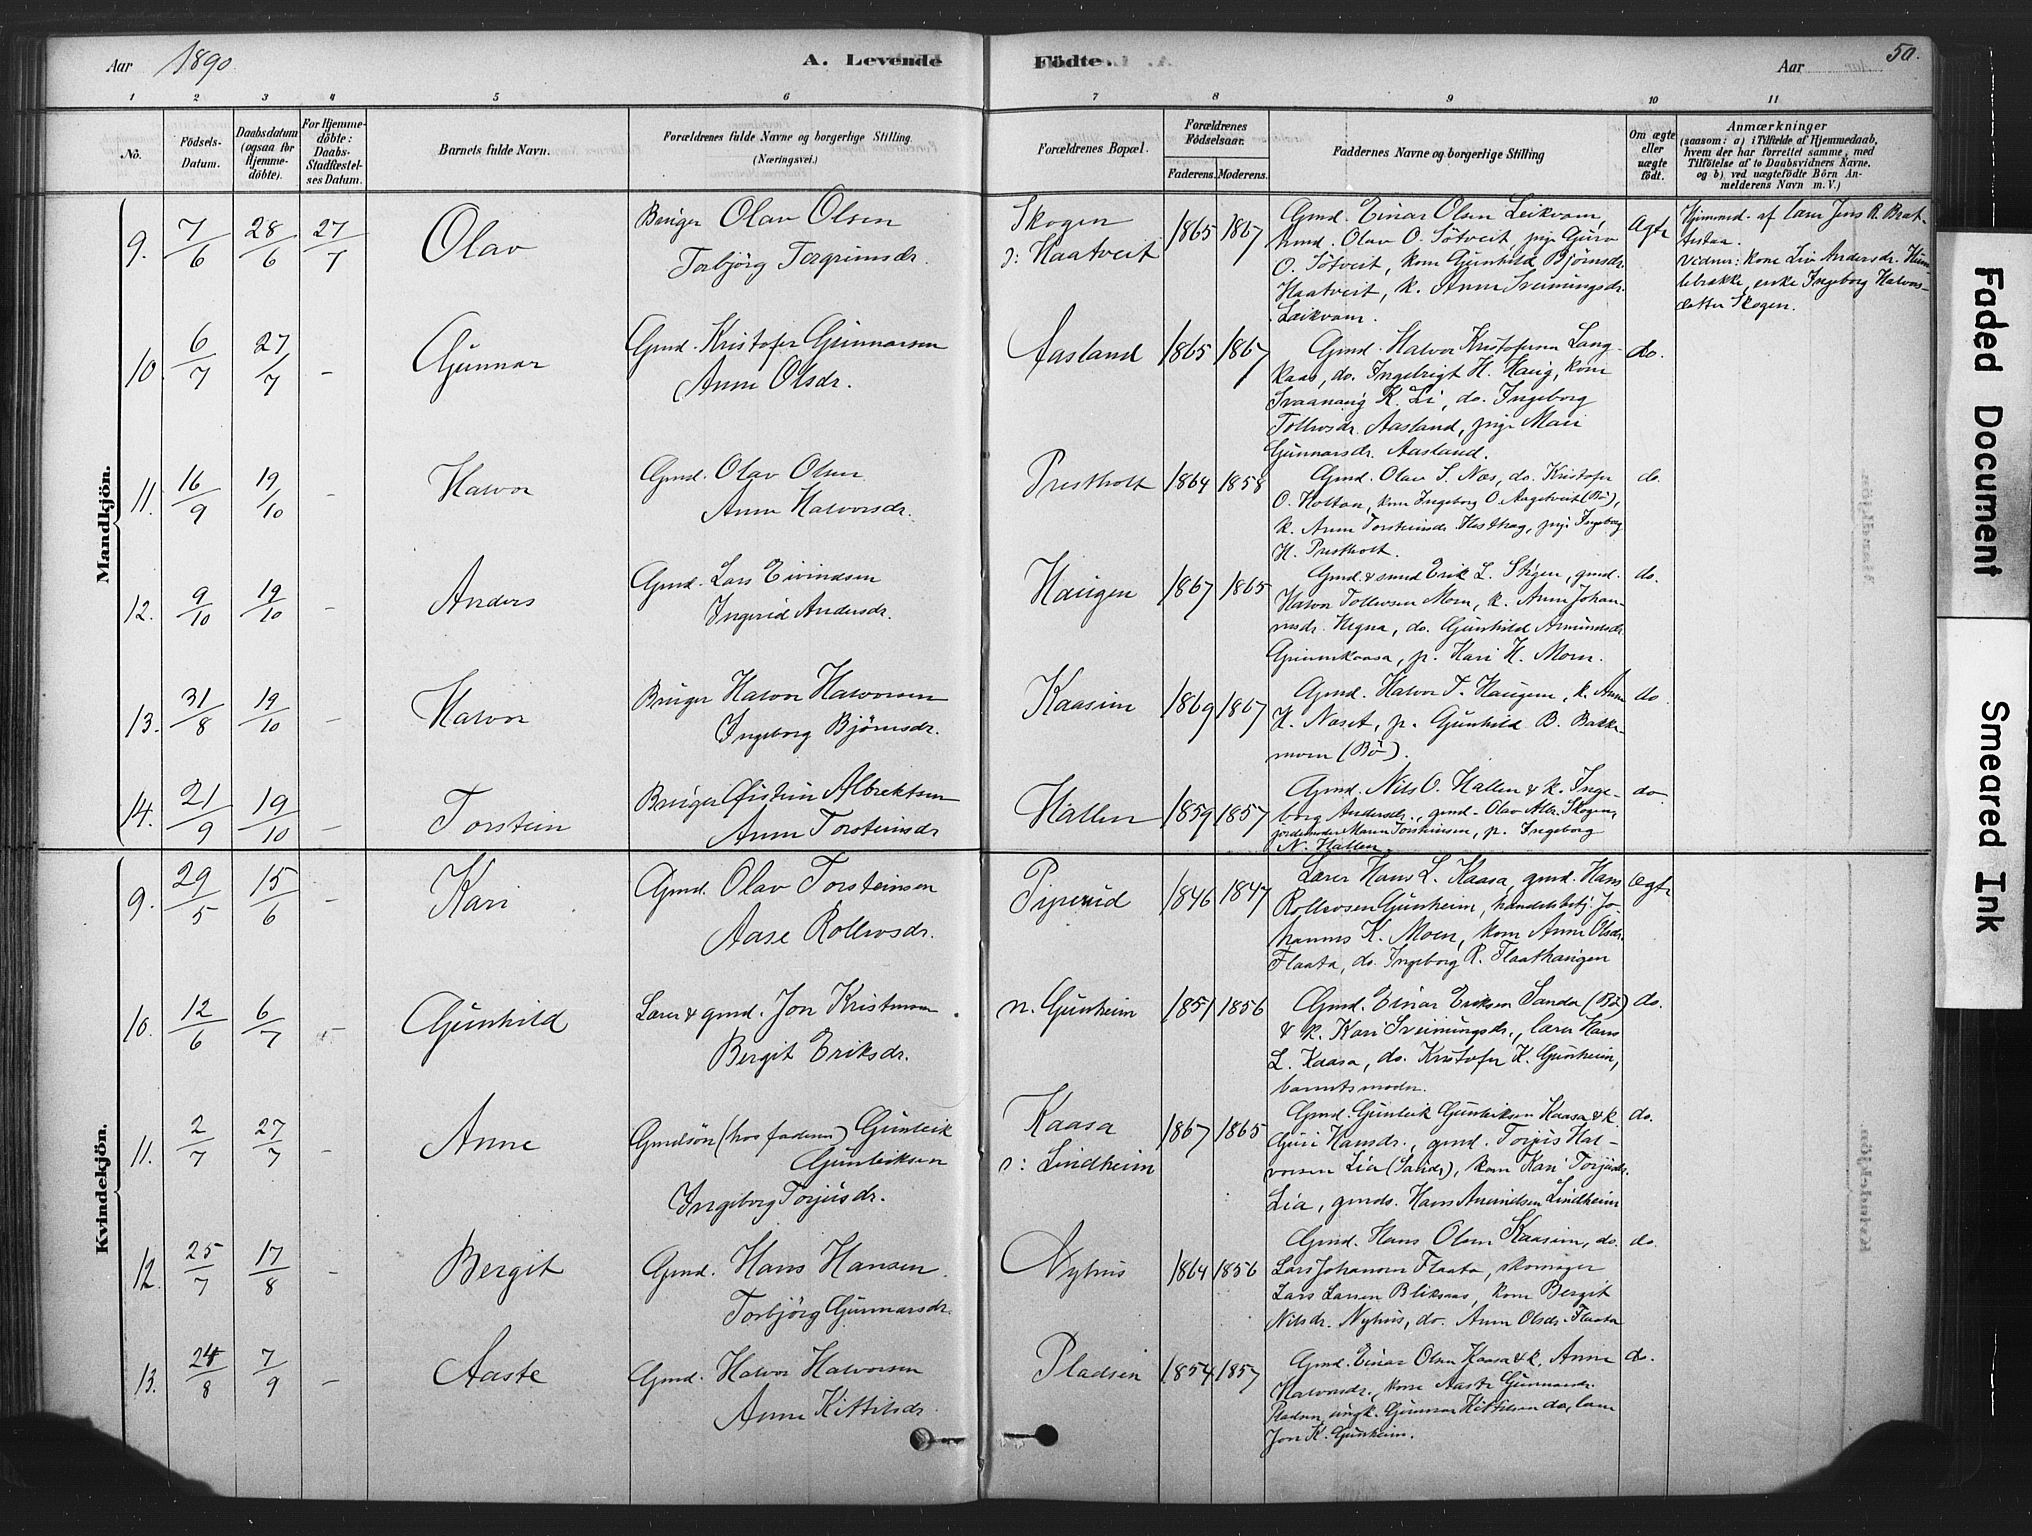 Aar 1890.
A. Levende
Födte.
Aar
50.
1 2 3 4 5 6 7 8 9 10 11
No.
Födsels-Datum.
Daabsdatum (ogsaa for Hjemme-döbte).
For Hjemme-döbte: Daabs-Stadfæstel-ses Datum.
Barnets fulde Navn.
Forældrenes fulde Navne og borgerlige Stilling.
(Næringsvei.)
Forældrenes Bopæl.
Forældrenes Födselsaar.
Faderens. Moderens.
Faddernes Navne og borgerlige Stilling
Om ægte eller uægte födt.
Anmærkninger
(saasom: a) i Tilfælde af Hjemmedaab,
hvem der har forrettet samme, med
Tilföielse af to Daabsvidners Navne,
og b) ved uægtefödte Börn An-
melderens Navn m. V.)
Mandkjön.
9. 7/6 28/6 27/7 Olav
Bruger Olav Olsen
Torbjörg Torgrimsdr.
Skogen
ɔ: Haatveit
1865 1867
Gmd. Einar Olsen Leikvam,
ungk. Olav O. Sötveit, pige Guro
O. Sötveit, kone Gunhild Bjørnsdr.
Haatveit, k. Anne Sveinungsdr.
Leikvam.
Ægte
Hjemmed. af lærer Jens R. Brat-
testaa.
Vidner: kone Liv Andersdr. Hum-
lebrække, enke Ingeborg Halvors-
datter Skogen.
10. 6/7 27/7 - Gunnar
Gmd. Kristofer Gunnarsen
Anne Olsdr.
Aasland 1865 1867
Gmd. Halvor Kristofersen Lang-
kaas, do. Ingebrigt H. Haug, kone
Svaanaug K. Li, do. Ingeborg
Tollevsdr. Aasland, pige Mari
Gunnarsdr. Aasland.
do.
11. 16/9 19/10 - Halvor
Gmd. Olav Olsen
Anne Halvorsdr.
Prestholt 1864 1858
Gmd. Olav S. Næs, do. Kristofer
O. Holtan, kone Ingeborg O. Aagetveit (Bö),
k. Anne Torsteinsdr. Hasthag, pige Ingeborg
H. Prestholt.
do.
12. 9/10 19/10 - Anders
Gmd. Lars Eivindsen
Ingerid Andersdr.
Haugen 1867 1865
Gmd. & smed Erik L. Stigen, gmd.
Halvor Tollevsen Moen, k. Anne Johan-
nesdr. Hegna, do. Gunhild Amundsdr.
Grimmkaasa, p. Kari H. Moen.
do.
13. 31/8 19/10 - Halvor
Bruger Halvor Halvorsen
Ingeborg Björnsdr.
Kaasin 1869 1867
Gmd. Halvor T. Haugen, k. Anne
H. Næset, p. Gunhild B. Bakke-
moen (Bö).
do.
14. 21/9 19/10 - Torstein
Bruger Øistein Albrektsen
Anne Torsteinsdr
Hallen 1859 1857
Gmd. Nils O. Hallen & k. Inge-
borg Andersdr., gmd. Olav Alb. Skogen,
jordemoder Maren Torsteinsen, p. Ingeborg
N. Hallen.
do.
Kvindekjön.
9. 29/5 15/6 - Kari
Gmd. Olav Torsteinsen
Aase Rollevsdr.
Piperud 1846 1847
Lærer Hans L. Kaasa, gmd. Hans
Rollevsen Gunheim, handelsbetj. Jo-
hannes K. Moen, kone Anne Olsdr.
Flaata, do. Ingeborg R. Flaathaugen
Ægte
10. 12/6 6/7 - Gunhild
Lærer & gmd. Jon Kristensen
Bergit Eriksdr.
n. Gunheim 1851 1856
Gmd. Einar Eriksen Sanda (Bö)
& k. Kari Sveinungsdr., lærer Hans
L. Kaasa, do. Kristofer K. Gunheim,
barnets moder.
do.
11. 2/7 27/7 - Anne
Gmdsön (hos faderen) Gunleik
Gunleiksen
Ingeborg Torjusdr.
Kaasa
ɔ: Lindheim
1867 1865
Gmd. Gunleik Gunleiksen Kaasa & k.
Guri Hansdr., gmd. Torjus Hal-
vorsen Lia (Sauds), kone Kari Torjusdr.
Lia, gmds. Hans Amundsen Lindheim
do.
12. 25/7 17/8 - Bergit
Gmd. Hans Hansen
Torbjörg Gunnarsdr.
Nyhus 1864 1856
Gmd. Hans Olsen Kaasin, do.
Lars Johansen Flaata, skomager
Lars Larsen Bliksaas, kone Bergit
Nilsdr. Nyhus, do. Anne Olsdr. Flaata
do.
13. 24/8 7/9 - Aaste
Gmd. Halvor Halvorsen
Anne Kittilsdr.
Pladsen 1854 1857
Gmd. Einar Olsen Kaasa & k. Anne
Halvorsdr., kone Aaste Gunnarsdr.
Pladsen, ungk. Gunnar Kittilsen do., lærer
Jon K. Gunheim.
do.
Faded Document
Smeared Ink